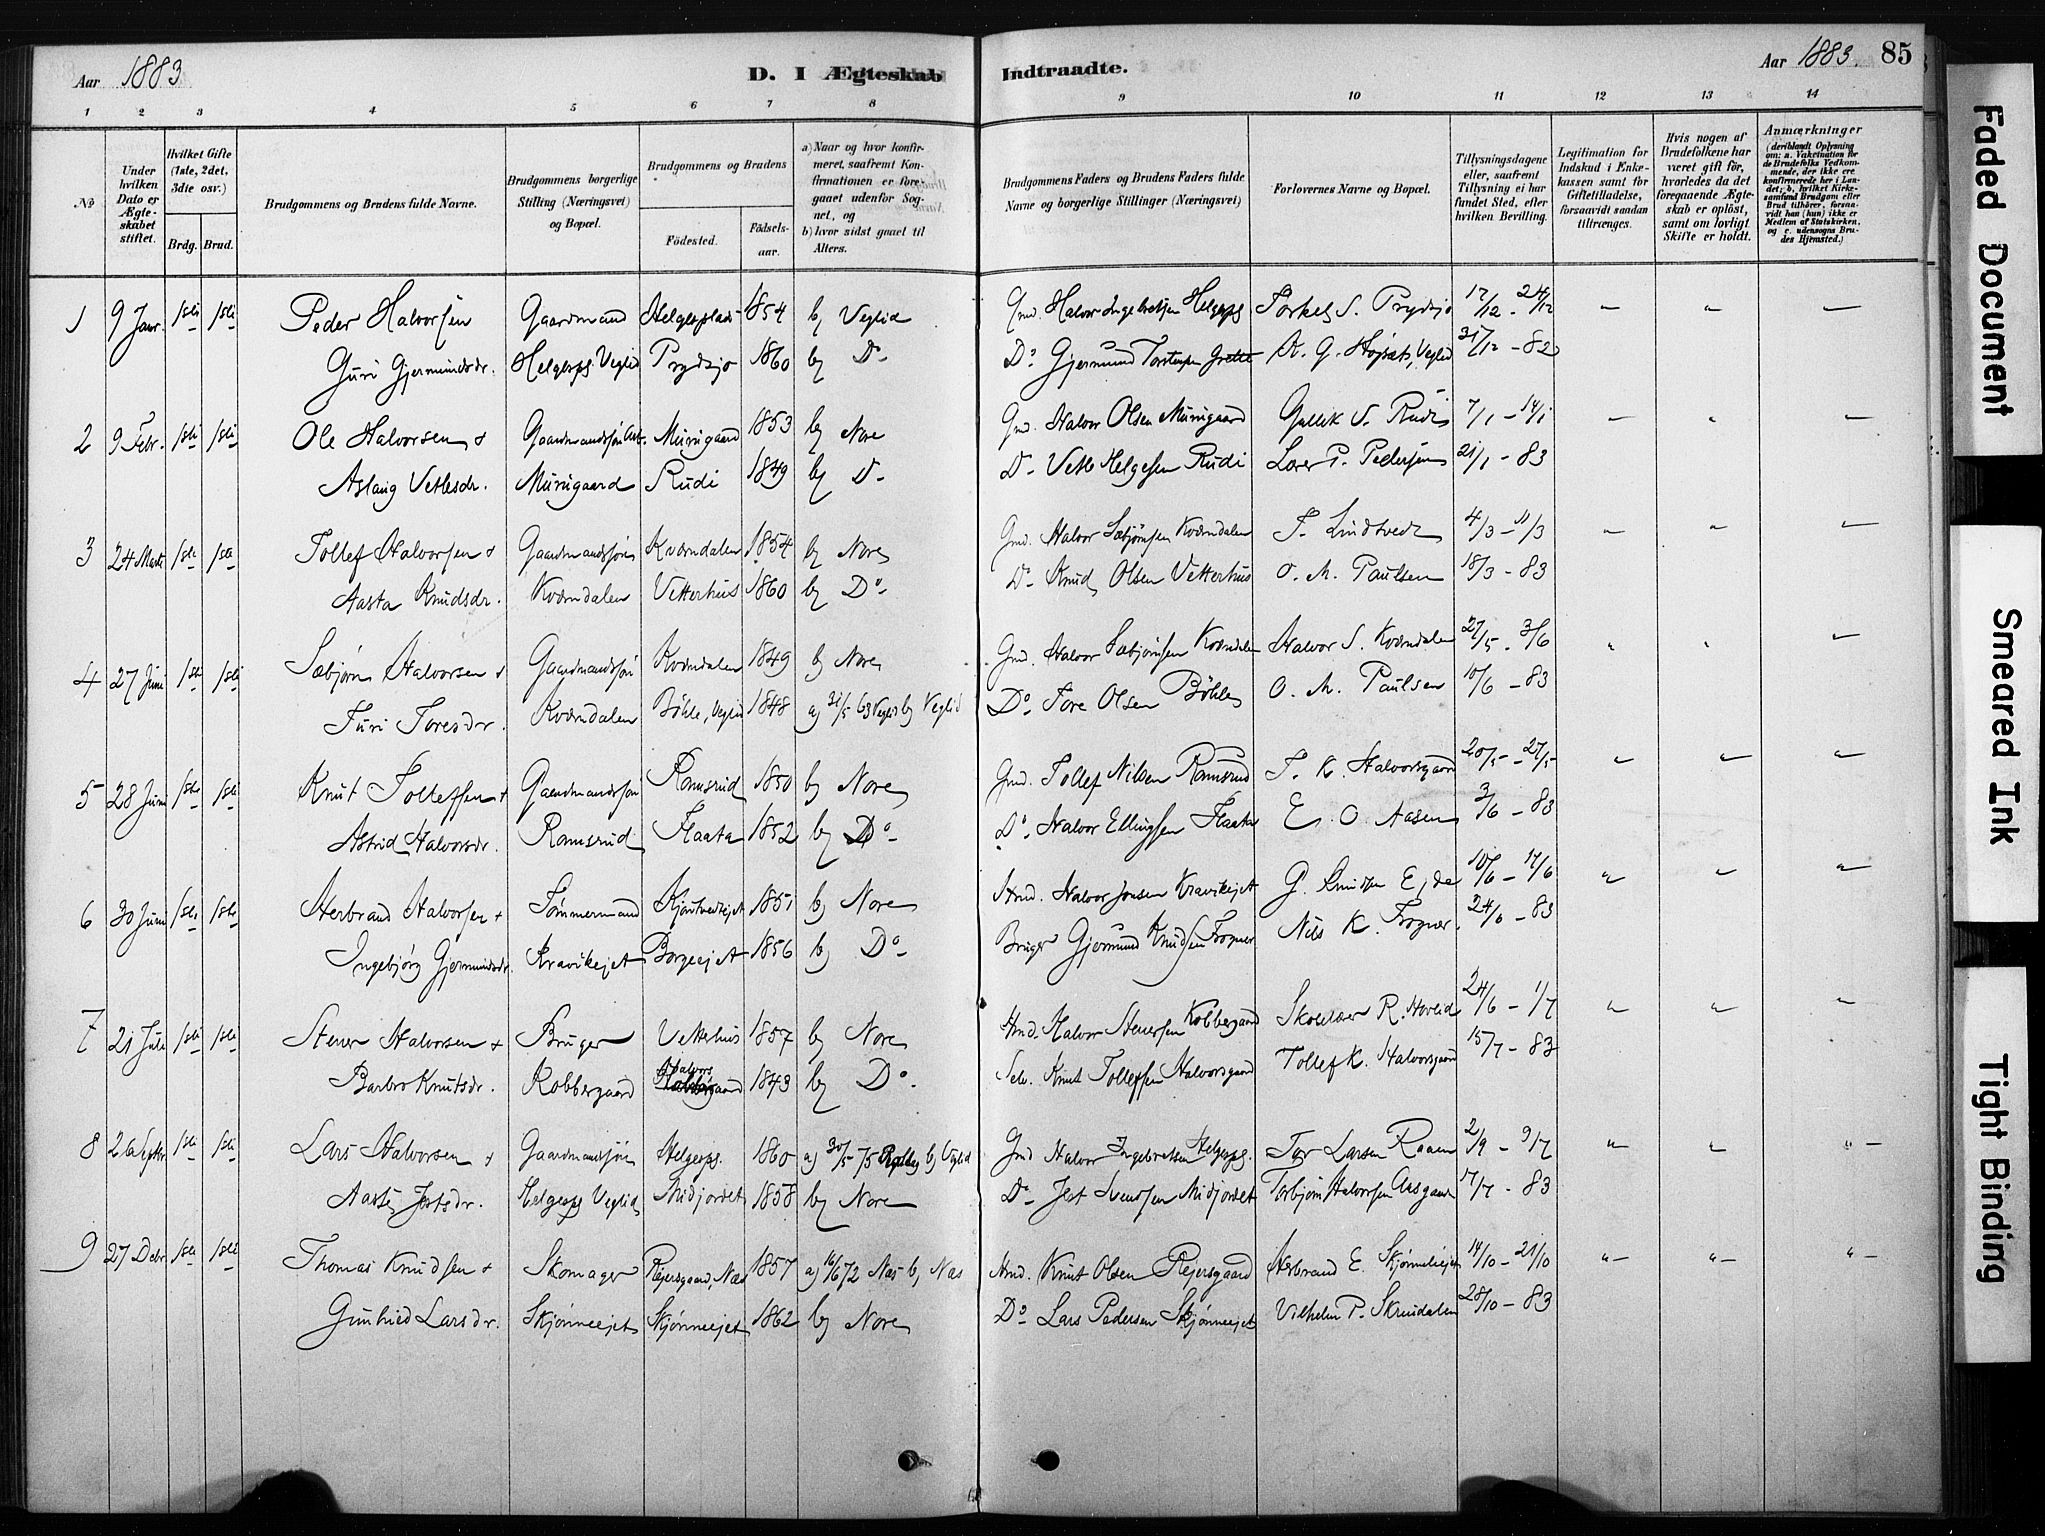 Aar 1883
D. I Ægteskab Indtraadte.
Aar 1883. 85
1 2 3 4 5 6 7 8 9 10 11 12 13 14
No
Under hvilken Dato er Ægteskabet stiftet.
Hvilket Gifte (1ste, 2det, 3die osv.)
Brdg. Brud.
Brudgommens og Brudens fulde Navne.
Brudgommens borgerlige Stilling (Næringsvei) og Bopæl.
Brudgommens og Brudens
Fødested.
Fødselsaar.
a) Naar og hvor konfirmeret, saafremt Konfirmationen er foregaaet udenfor Sognet, og
b) hvor sidst gaaet til Alters.
Brudgommens Faders og Brudens Faders fulde Navne og borgerlige Stillinger (Næringsvei)
Forlovernes Navne og Bopæl.
Tillysningsdagene eller, saafremt Tillysning ei har fundet Sted, efter hvilken Bevilling.
Legitimation for Indskud i Enkekassen samt for Giftetilladelse, forsaavidt saadan tiltrænges.
Hvis nogen af Brudefolkene har været gift før, hvorledes da det foregaaende Ægteskab er opløst, samt om lovligt Skifte er holdt.
Anmærkninger
(deriblandt Oplysning om: a. Vakcination for de Brudefolks Vedkommende, der ikke ere konfirmerede her i Landet; b, hvilket Kirkesamfund Brudgom eller Brud tilhører, forsaavidt han (hun) ikke er Medlem af Statskirken, og c. udensogns Brudes Hjemsted.)
1 9 Janr. 1ste 1ste Peder Halvorsen Gaardmand Helgesplads 1854 b) Veglid Gmd. Halvor Ingebretsen Helgespl Torkel S. Prydsjo 17/12 - 24/12
Guri Gjermundsdr. Helgespl. Veglid Prydsjo 1860 b) Do Do Gjermund Torstensen 31/12 - 82
2 9 Febr. 1ste 1ste Ole Halvorsen + Gaardmandssøn Murigaard 1853 b) Nore Gmd. Halvor Olsen Murigaard Gullik V. Rudi 7/1 - 14/1
Aslaug Vetlesdr. Murigaard Rudi 1849 b) Do Do Vetle Helgesen Rudi Lærer P. Pedersen 21/1 - 83
3 24 Marts 1ste 1ste Tollef Halvorsen + Gaardmandssøn Kværndalen 1854 b) Nore Gmd. Halvor Sæbjørnsen Kværndalen T. Lindtvedt 4/3 - 11/3
Aasta Knudsdr. Kværndalen Vetterhus 1860 b) Do Do Knud Olsen Vetterhus O. M. Paulsen 18/3 - 83
4 27 Juni 1ste 1ste Sæbjørn Halvorsen + Gaardmandssøn Kværndalen 1849 b) Nore Gmd. Halvor Sæbjørnsen Kværndalen Halvor S. Kværndalen 27/5 - 3/6
Turi Toresdr. Kværndalen Bøhle, Veglid 1848 a) 31/5 63 Veglid b) Veglid Do Tore Olsen Bøhle O. M. Paulsen 10/6 - 83
5 28 Juni 1ste 1ste Knut Tollefsen + Gaardmandssøn Ramsrud 1850 b) Nore Gmd. Tollef Nilsen Ramsrud T. K. Halvorsgaard 20/5 - 27/5
Astrid Halvorsdr. Ramsrud Flaata 1852 b) Do Do Halvor Ellingsen Flaata E. O. Aasen 3/6 - 83
6 30 Juni 1ste 1ste Herbrand Halvorsen + Tømmermand Kjøntvedtejet 1851 b) Nore Hmd. Halvor Jonsen Kravikejet G. Knudsen Eide 10/6 - 17/6
Ingebjørg Gjermundsdr. Kravikejet Borgeejet 1856 b) Do Bruger Gjermund Knudsen Frogner Nils K. Frogner. 24/6 - 83
7 21 Juli 1ste 1ste Stener Halvorsen + Bruger Vetterhus 1857 b) Nore Hmd. Halvor Stenersen Kobbergaard Skolelærer R. Hovlid 24/6 - 1/7
Barbro Knutsdr. Kobbergaard Halvorsgaard 1843 b) Do Selv. Knut Tollefsen Halvorsgaard Tollef K. Halvorsgaard 15/7 - 83
8 26 Septbr. 1ste 1ste Lars Halvorsen + Gaardmandssøn Helgespl. 1860 a) 30/5 75 b) Veglid Gmd Halvor Ingebretsen Helgespl. Tov Larsen Raaen 2/9 - 9/7
Aaste Jostsdr. Helgespl Veglid Midjordet 1858 b) Nore Do Jost Svendsen Midjordet Torbjørn Halvorsen Aasgaard 17/7 - 83
9 27 Decbr 1ste 1ste Thomas Knudsen + Skomager Rejersgaard, Næs 1857 a) 16/6 72 Næs b) Næs Hmd. Knut Olsen Rejersgaard Asbrand E. Skjønneejet 14/10 - 21/10
Gunhild Larsdr. Skjønneejet Skjønneejet 1862 b) Nore Do Lars Pedersen Skjønneejet Vilhelm P. Skrudalen 28/10 - 83
Faded Document
Smeared Ink
Tight Binding